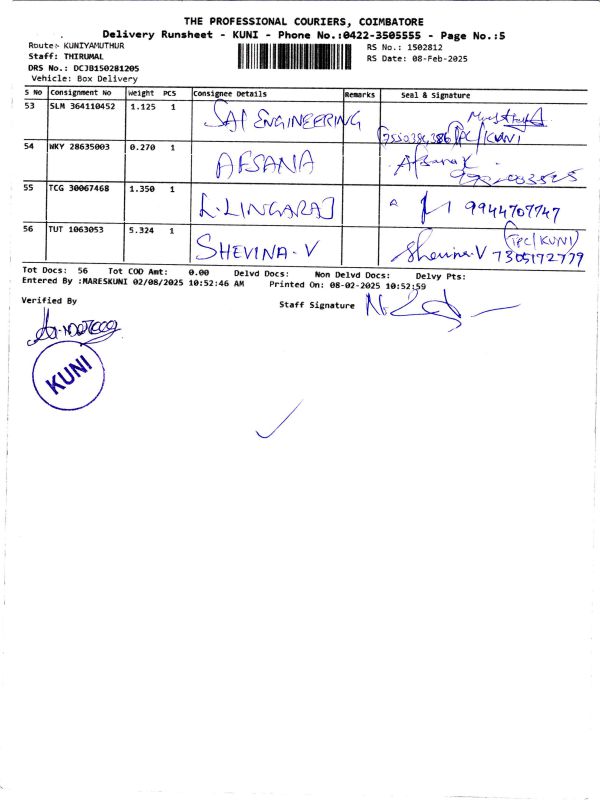 THE PROFESSIONAL COURIERS, COIMBATORE
Delivery Runsheet - KUNI - Phone No.:0422-3505555 - Page No.:5
Route:- KUNIYAMUTHUR
RS No.: 1502812
Staff: THIRUMAL
RS Date: 08-Feb-2025
DRS No.: DCJB150281205
Vehicle: Box Delivery
S No Consignment No Weight PCS Consignee Details Remarks Seal & Signature
53 SLM 364110452 1.125 1 SAI ENGINEERING
TPC/KUNI
54 WKY 28635003 0.270 1 AFSANA Afsana K
55 TCG 30067468 1.350 1 L. LINGARAJ 9944707747
56 TUT 1063053 5.324 1 SHEVINA. V Shevina. V 7305172779
(TPC/KUNI)
Tot Docs: 56 Tot COD Amt: 0.00 Delvd Docs: Non Delvd Docs: Delvy Pts:
Entered By :MARESKUNI 02/08/2025 10:52:46 AM Printed On: 08-02-2025 10:52:59
Verified By
Staff Signature
KUNI